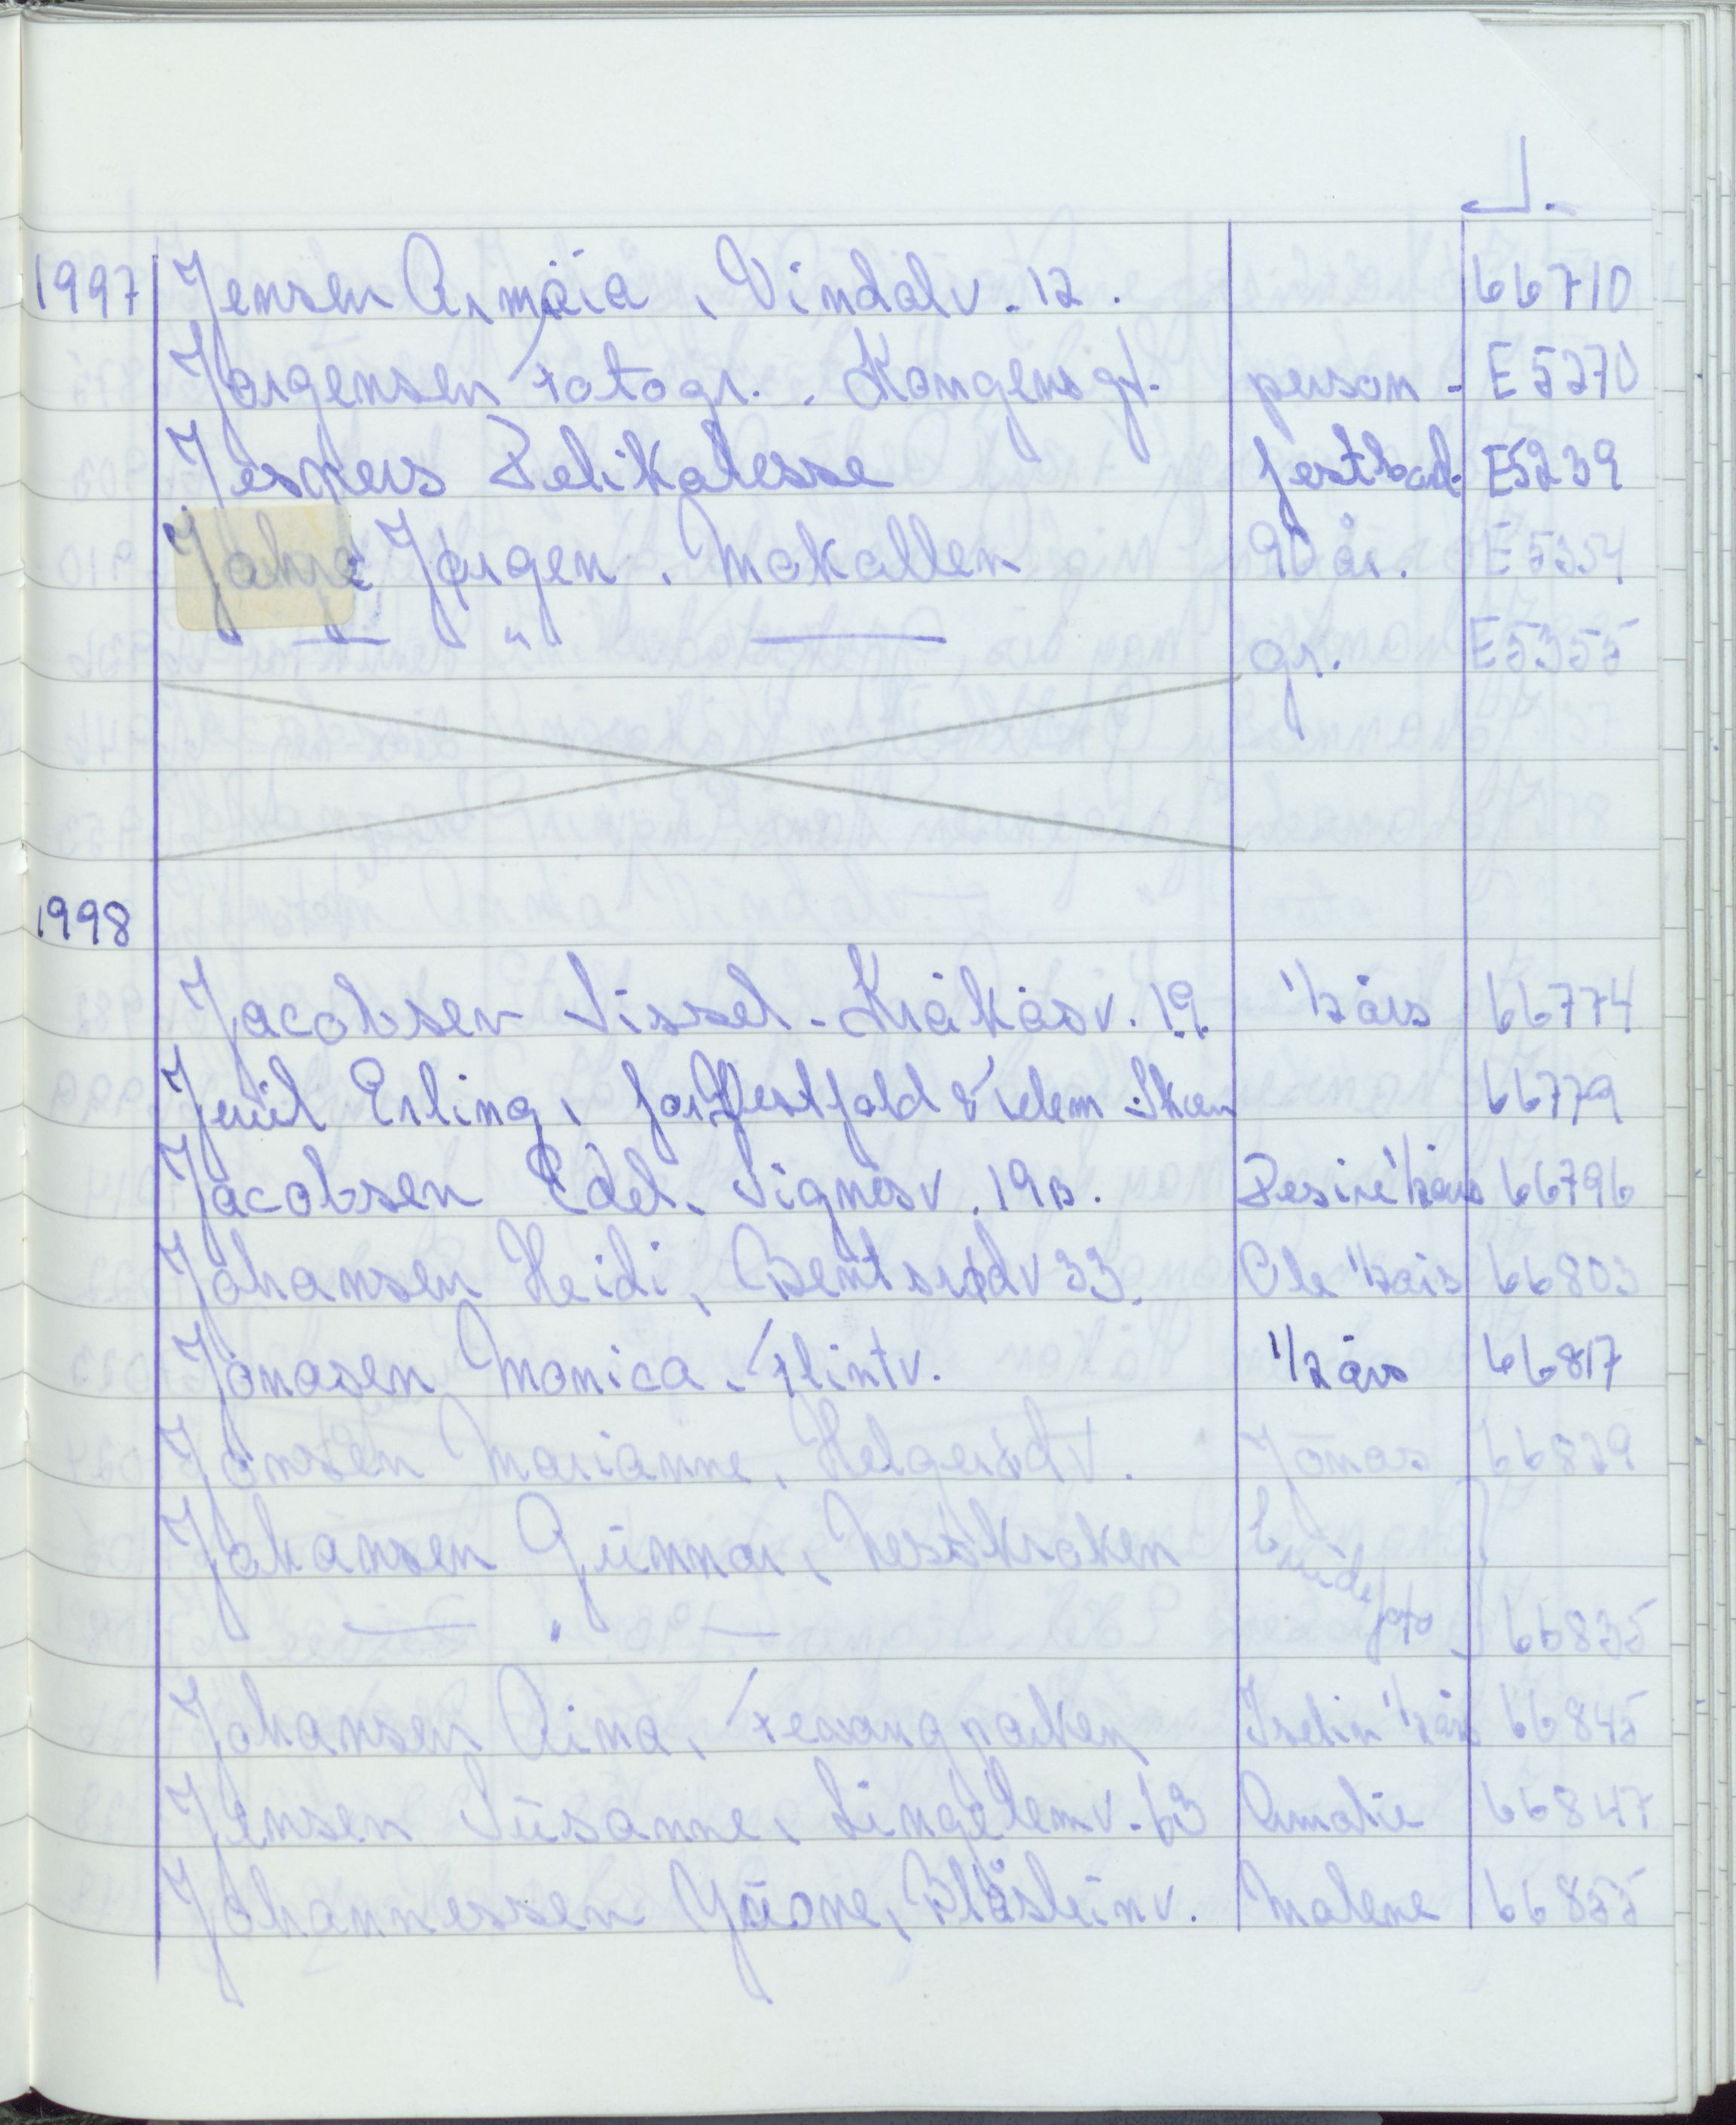 J.
1997 Jensen Armöia, Vindalv. 12. 66710
Jørgensen Fotogr., Kongensgt. person - E5270
Jespers Delikatesse festbord E5239
Jahre Jørgen, Makallen 90 år. E5354
— " — gr. E5355
1998
Jacobsen Sissel - Kråkåsv. 19. 1/2 års 66774
Juul Erling, for Vestfold & Telem Skien 66779
Jacobsen Edel, Signesv. 19B. Desiré 1/2 års 66796
Johansen Heidi, Bentsrødv 33. Ole 1/2 års 66803
Jonasen Monica, Flintv. 1/2 års 66817
Jonsen Marianne, Helgerødv. Jonas 66829
Johansen Gunnar, Nesskroken brude
— " — foto 66835
Johansen Aina, Fevangparken Iselin 1/2 års 66845
Jensen Susanne, Lingelemv. 63 Amalie 66847
Johannessen Yuone, Blåsteinv. Malene 66855